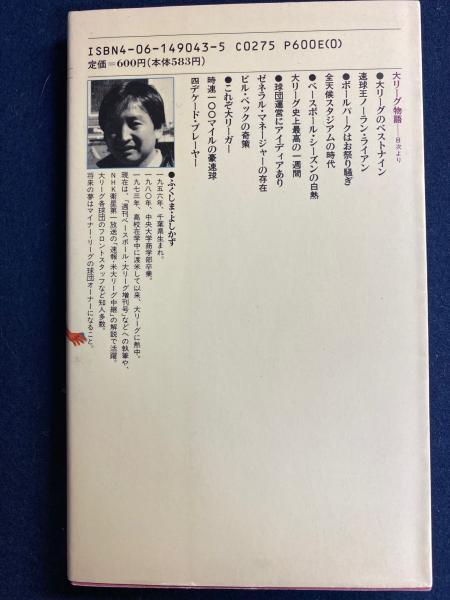 ISBN4-06-149043-5 C0275 P600E(0)
定価=600円(本体583円)
大リーグ物語―目次より
●大リーグのベストナイン
速球王ノーラン・ライアン
●ボールパークはお祭り騒ぎ
全天候スタジアムの時代
●ベースボール・シーズンの白熱
大リーグ史上最高の一週間
●球団運営にアイディアあり
ゼネラル・マネージャーの存在
ビル・ベックの奇策
●これぞ大リーガー
時速一〇〇マイルの豪速球
四デケード・プレーヤー
●ふくしま・よしかず
一九五六年、千葉県生まれ。
一九八〇年、中央大学商学部卒業。
一九七三年、高校在学中に渡米して以来、大リーグに熱中。
現在は、「週刊ベースボール・大リーグ増刊号」などへの執筆や、
NHK衛星第一放送の「速報・米大リーグ中継」の解説で活躍。
大リーグ各球団のフロントスタッフなど知人多数。
将来の夢はマイナー・リーグの球団オーナーになること。